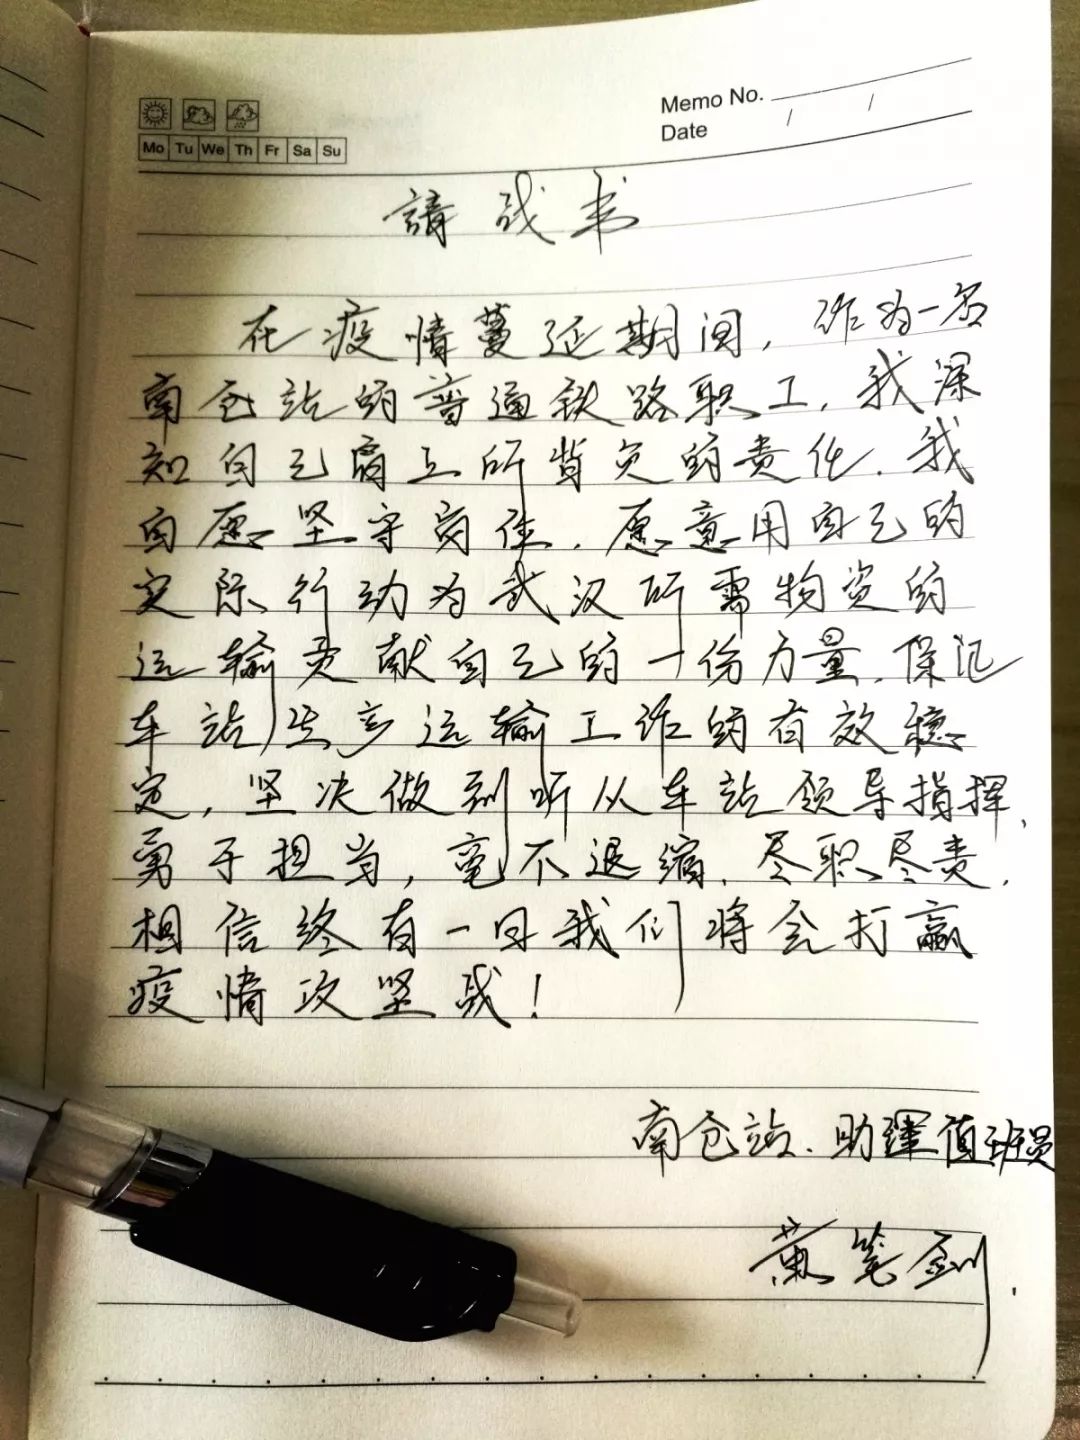 Memo No.
Date / /
Mo Tu We Th Fr Sa Su
請战书
在疫情蔓延期间，作为一名
南仓站的普通铁路职工，我深
知自己肩上所背负的责任．我
自愿坚守岗位．愿意用自己的
实际行动为武汉所需物资的
运输贡献自己的一份力量．保证
车站生产运输工作的有效稳
定，坚决做到听从车站领导指挥，
勇于担当，毫不退缩．尽职尽责．
相信终有一日我们将会打赢
疫情攻坚战！
南仓站．助理值班员
黄笔剑．